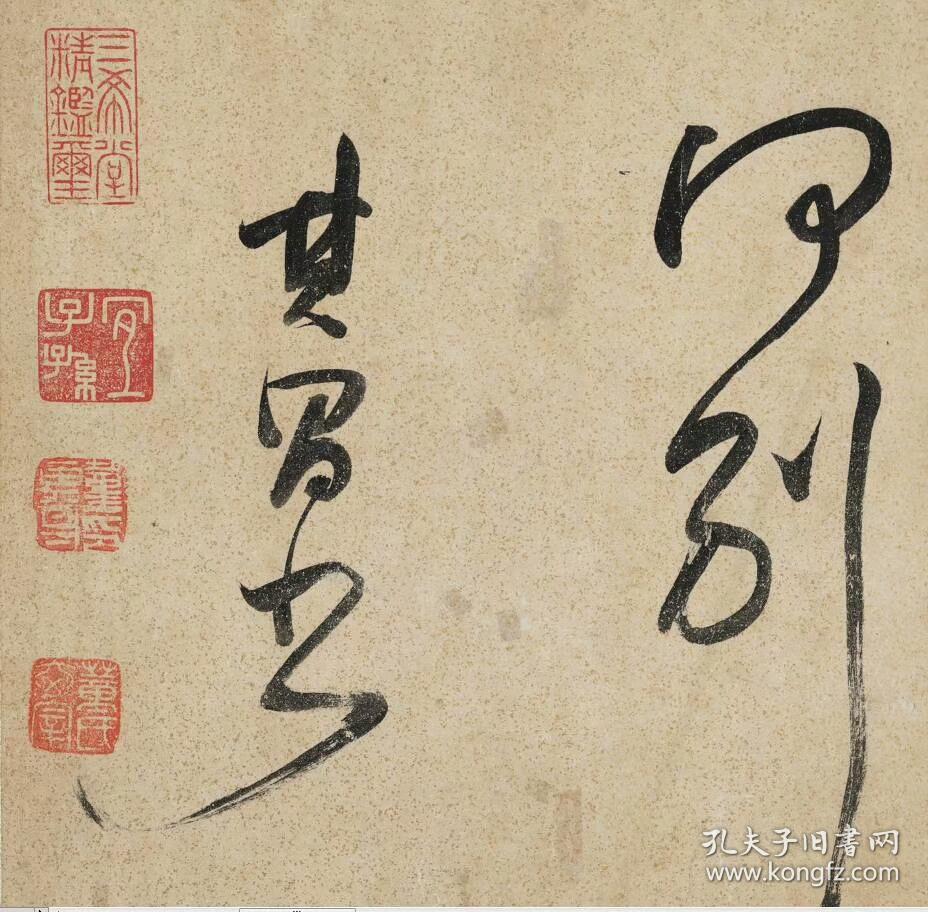 何别
其昌書
三希堂
精鑑璽
宜
子孫
孔夫子旧书网
www.kongfz.com